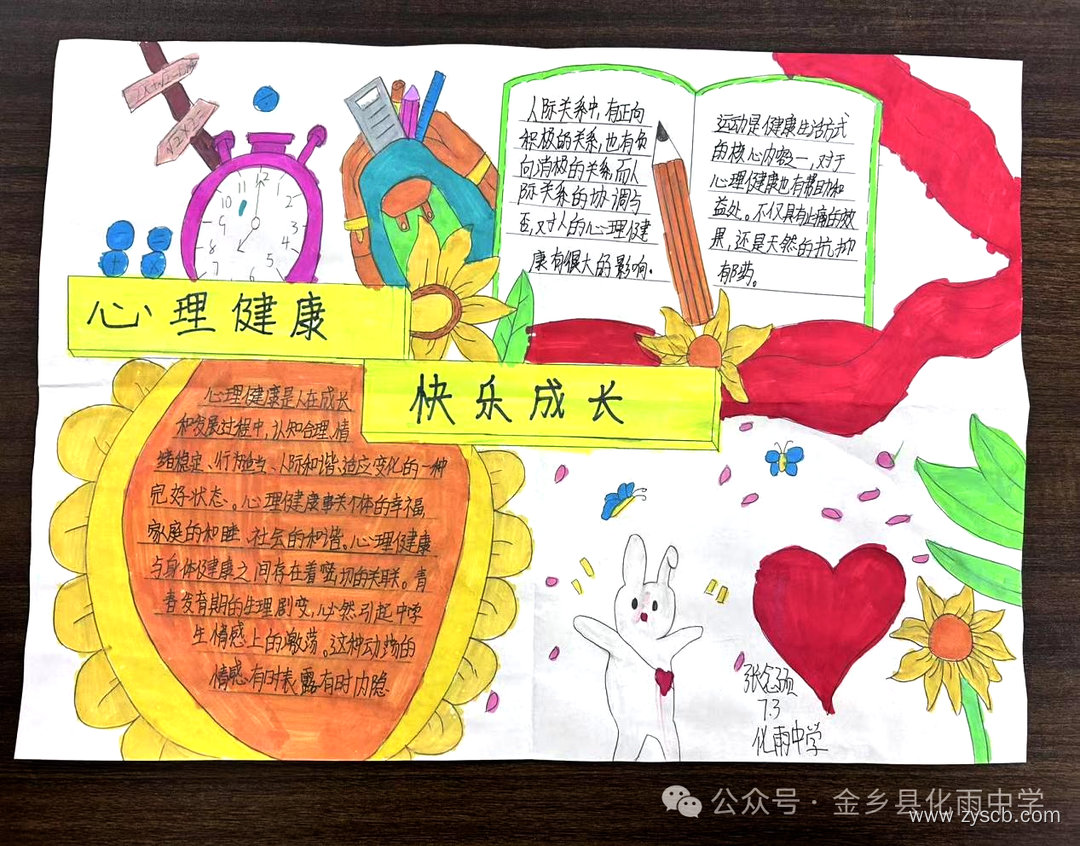 心理健康
快乐成长
人际关系中,有正向
积极的关系,也有负
向消极的关系,而人
际关系的协调与
否,对人的心理健
康有很大的影响.
运动是健康生活方式
的核心内容之一,对于
心理健康也有帮助和
益处。不仅具有止痛的效
果,还是天然的抗抑
郁药。
心理健康是人在成长
和发展过程中,认知合理、情
绪稳定、行为适当、人际和谐、适应变化的一种
完好状态。心理健康事关个体的幸福,
家庭的和睦、社会的和谐。心理健康
与身体健康之间存在着密切的关联。青
春发育期的生理剧变,必然引起中学
生情感上的激荡。这种动荡的
情感有时表露有时内隐
12
1
2
3
4
5
6
7
8
9
10
11
7.3
化雨中学
公众号·金乡县化雨中学
www.zyscb.com